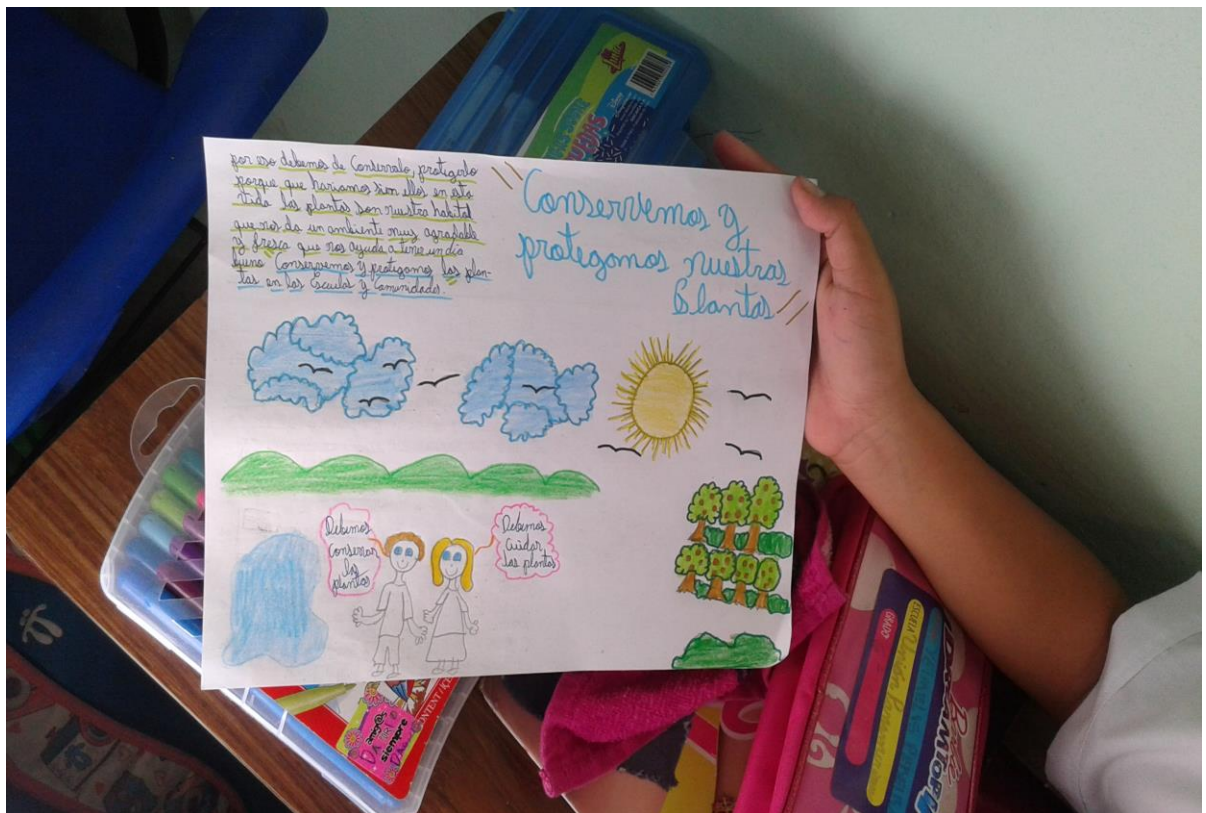 por eso debemos de Conserralo, protigerlo
porque que hariamos sien ellos en esta
vida las plantas son nuestra habitat
que nos da un ambiente muy agradable
y fresca que nos ayuda a tener un día
bueno Conservemos y protigamos las plan-
tas en las Escuelas y Comunidades.
"Conservemos y
protegamos nuestras
Plantas"
Debemos
Conserrar
las
plantas
Debemos
Cuidar
las plantas
amigos
siempre
ESCUELA
GRADO